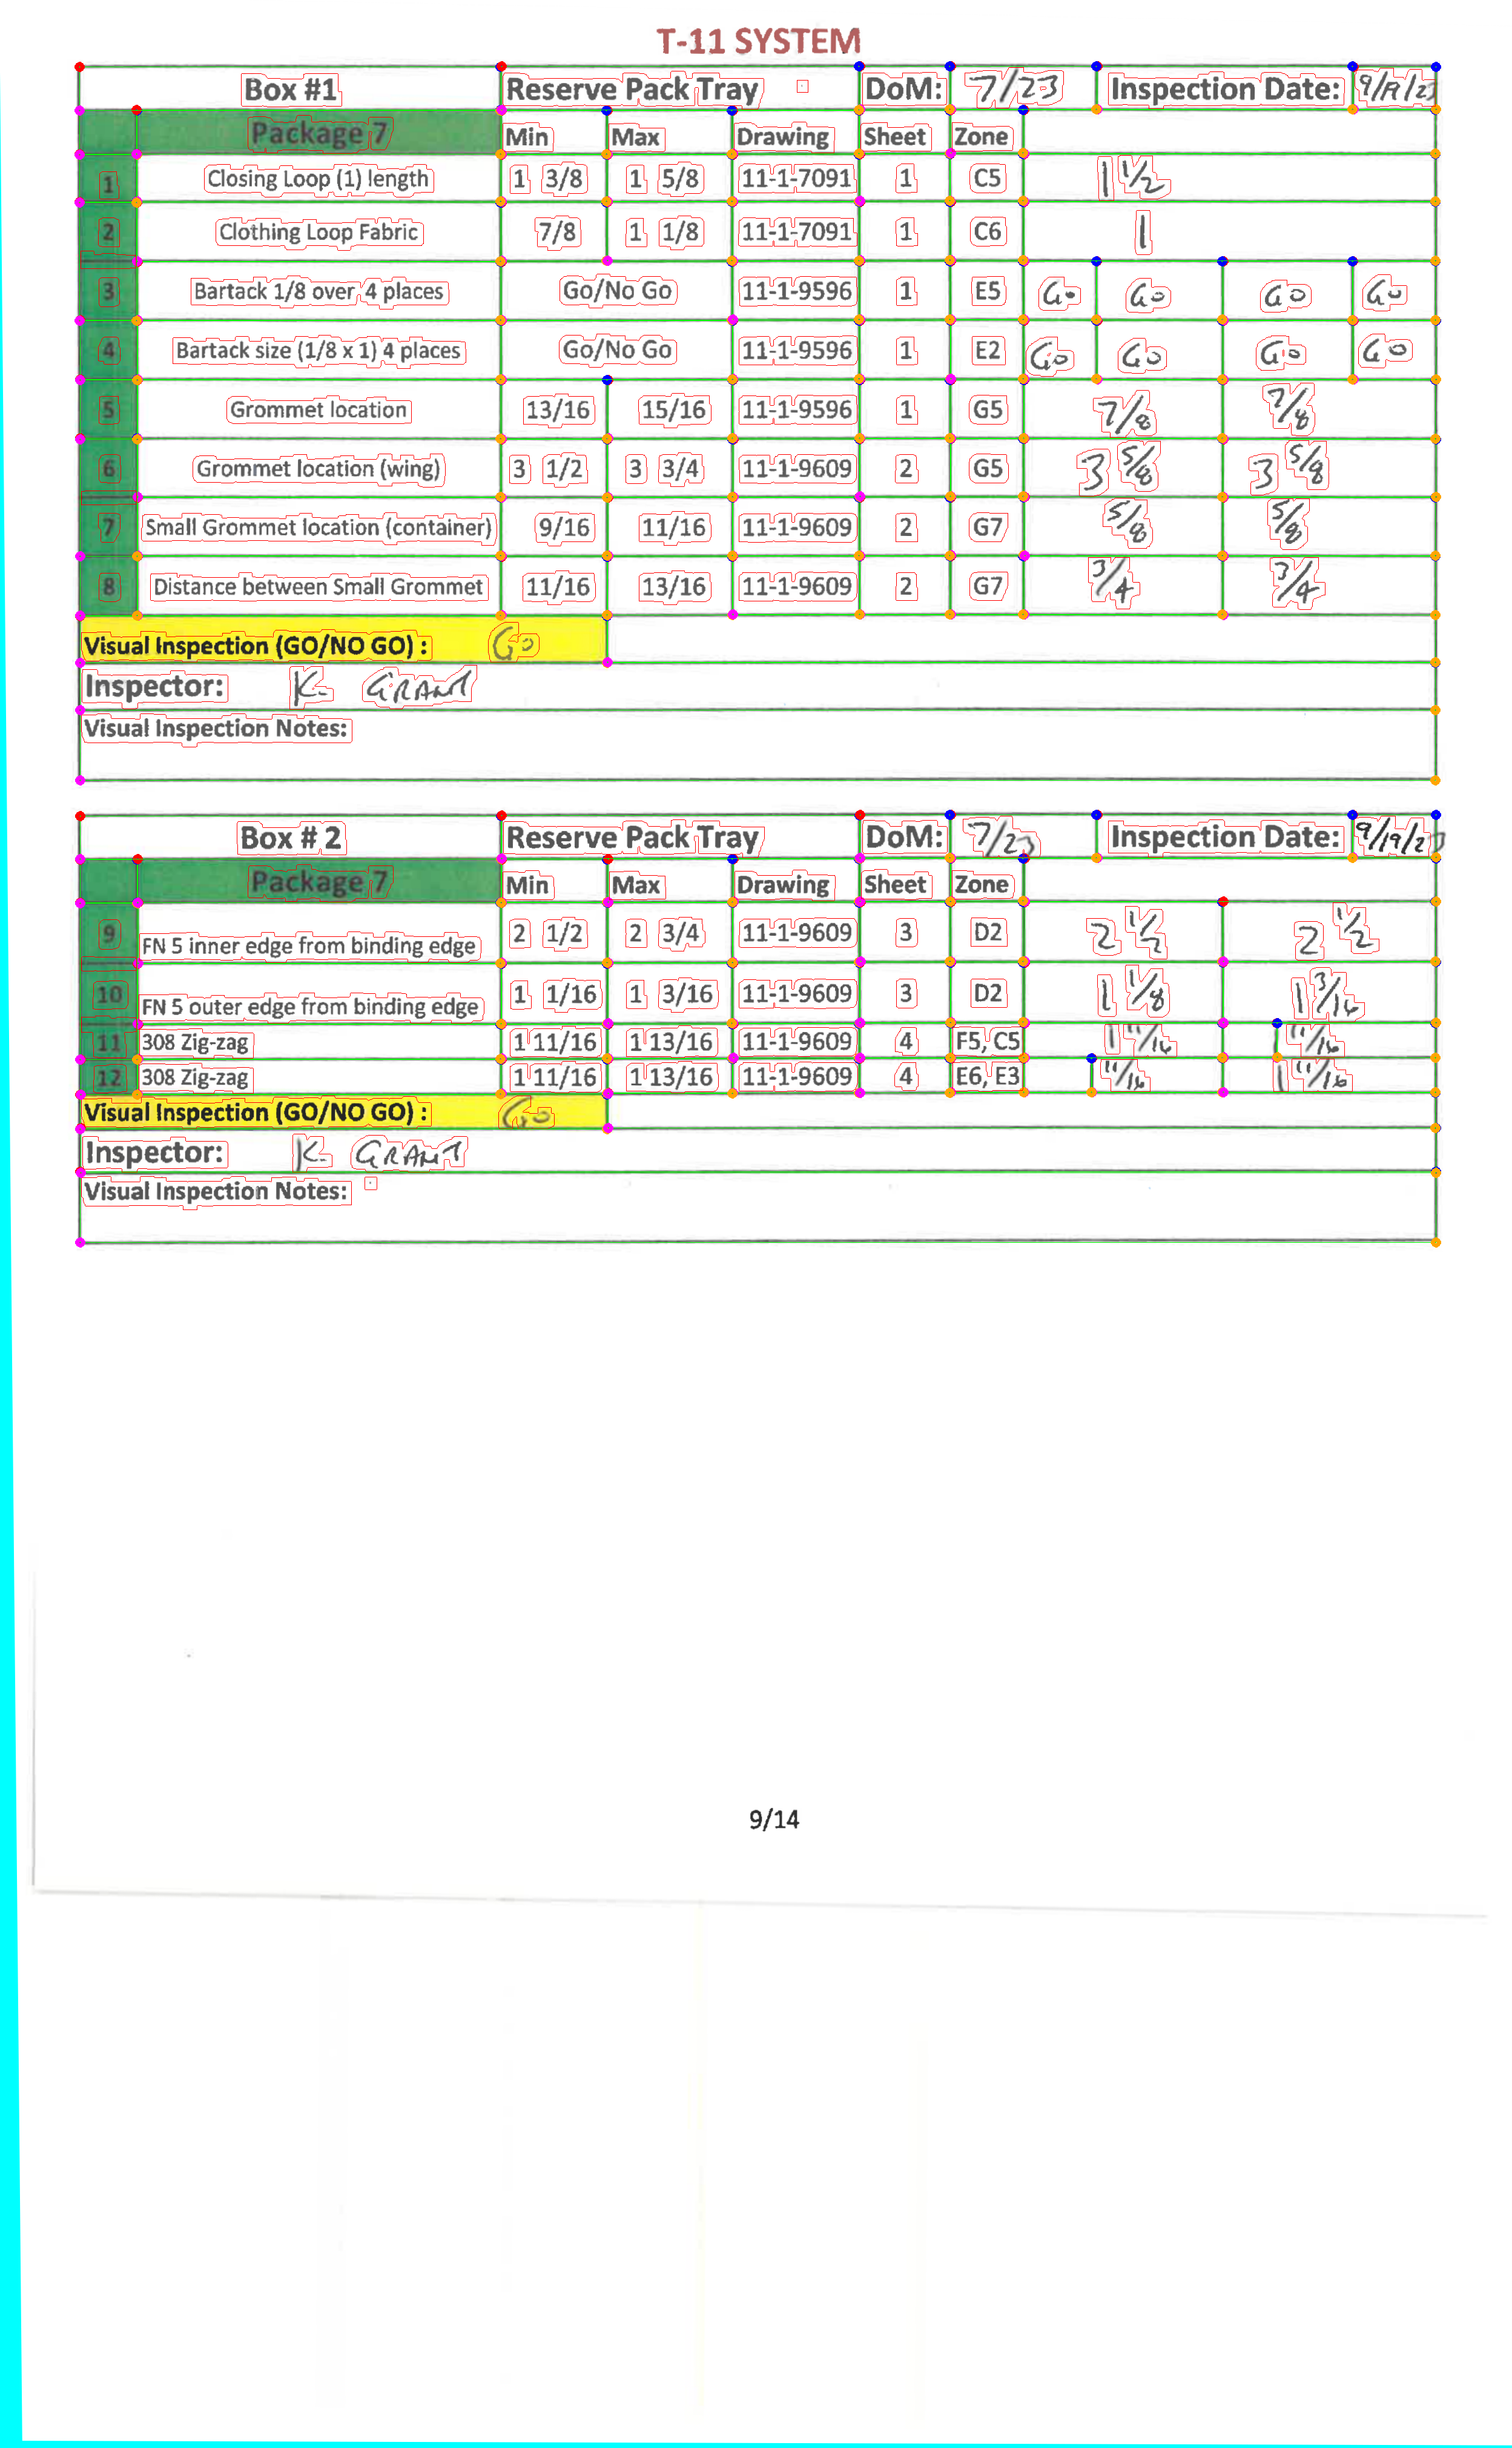 T-11 SYSTEM
Box #1 Reserve Pack Tray DoM: 7/23 Inspection Date: 9/19/23
Package 7 Min Max Drawing Sheet Zone
1 Closing Loop (1) length 1 3/8 1 5/8 11-1-7091 1 C5 1 1/2
2 Clothing Loop Fabric 7/8 1 1/8 11-1-7091 1 C6 1
3 Bartack 1/8 over 4 places Go/No Go 11-1-9596 1 E5 Go Go Go Go
4 Bartack size (1/8 x 1) 4 places Go/No Go 11-1-9596 1 E2 Go Go Go Go
5 Grommet location 13/16 15/16 11-1-9596 1 G5 7/8 7/8
6 Grommet location (wing) 3 1/2 3 3/4 11-1-9609 2 G5 3 5/8 3 5/8
7 Small Grommet location (container) 9/16 11/16 11-1-9609 2 G7 5/8 5/8
8 Distance between Small Grommet 11/16 13/16 11-1-9609 2 G7 3/4 3/4
Visual Inspection (GO/NO GO) : Go
Inspector: K. GRANT
Visual Inspection Notes:
Box # 2 Reserve Pack Tray DoM: 7/23 Inspection Date: 9/19/23
Package 7 Min Max Drawing Sheet Zone
9 FN 5 inner edge from binding edge 2 1/2 2 3/4 11-1-9609 3 D2 2 1/2 2 1/2
10 FN 5 outer edge from binding edge 1 1/16 1 3/16 11-1-9609 3 D2 1 1/8 1 3/16
11 308 Zig-zag 1 11/16 1 13/16 11-1-9609 4 F5, C5 1 11/16 1 11/16
12 308 Zig-zag 1 11/16 1 13/16 11-1-9609 4 E6, E3 1 11/16 1 11/16
Visual Inspection (GO/NO GO) : Go
Inspector: K. GRANT
Visual Inspection Notes:
9/14